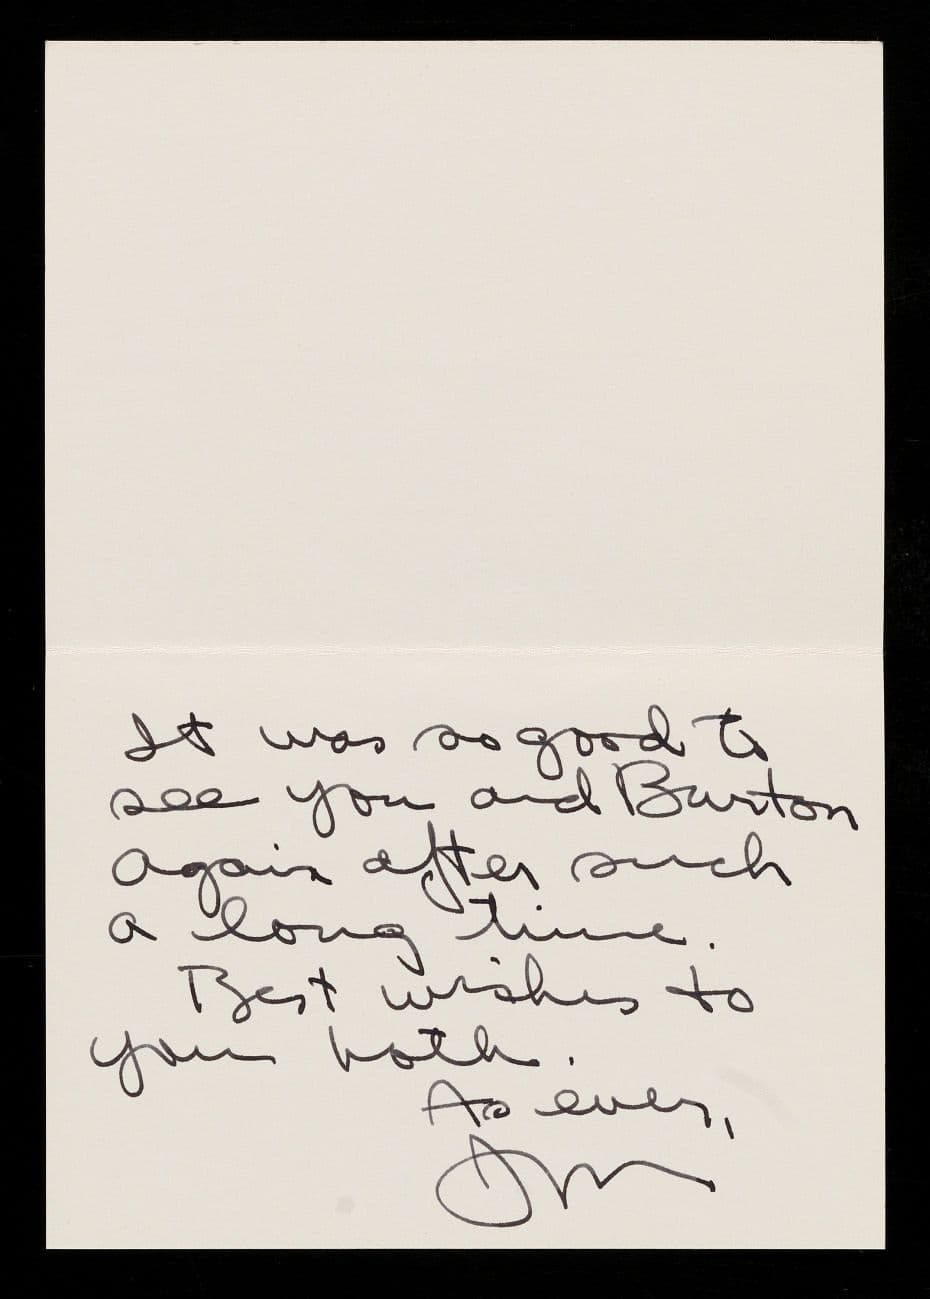 It was so good to
see you and Burton
again after such
a long time.
Best wishes to
you both.
As ever,